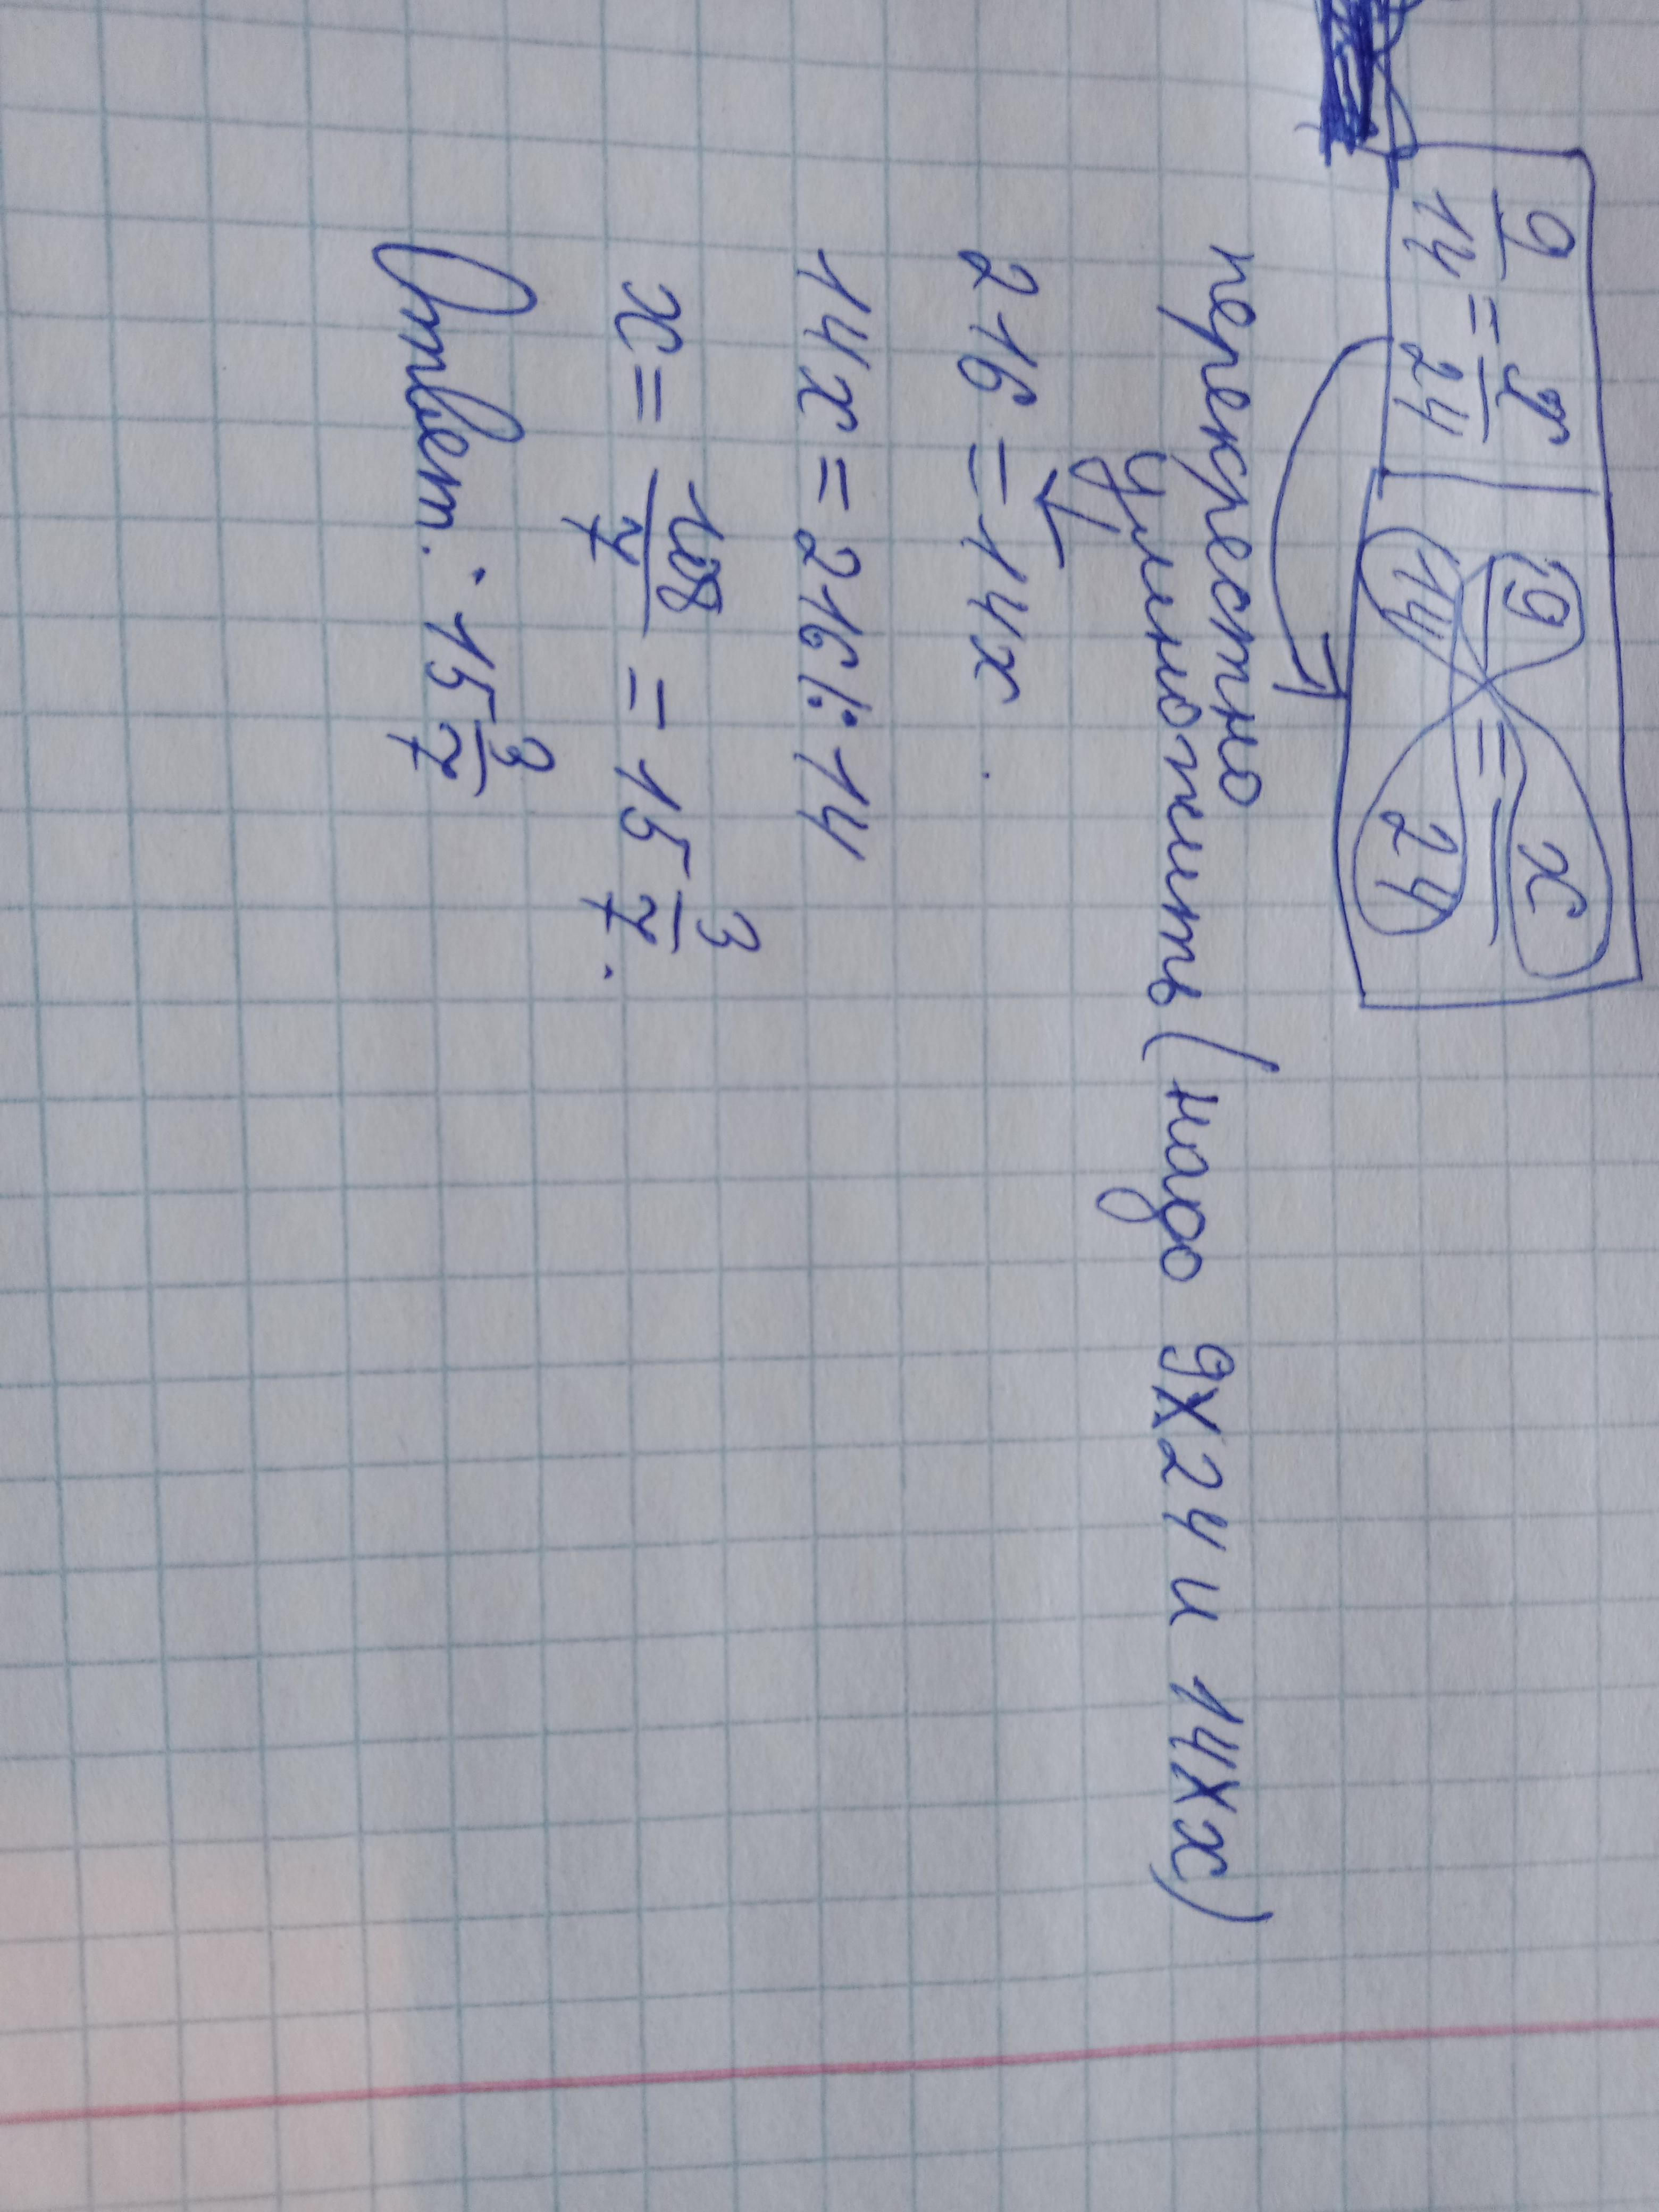 9/14 = x/24 | 9/14 = x/24
перекрестно
умножить (надо 9X24 и 14Xx)
216 = 14x.
14x = 216 |: 14
x = 108/7 = 15 3/7.
Ответ: 15 3/7